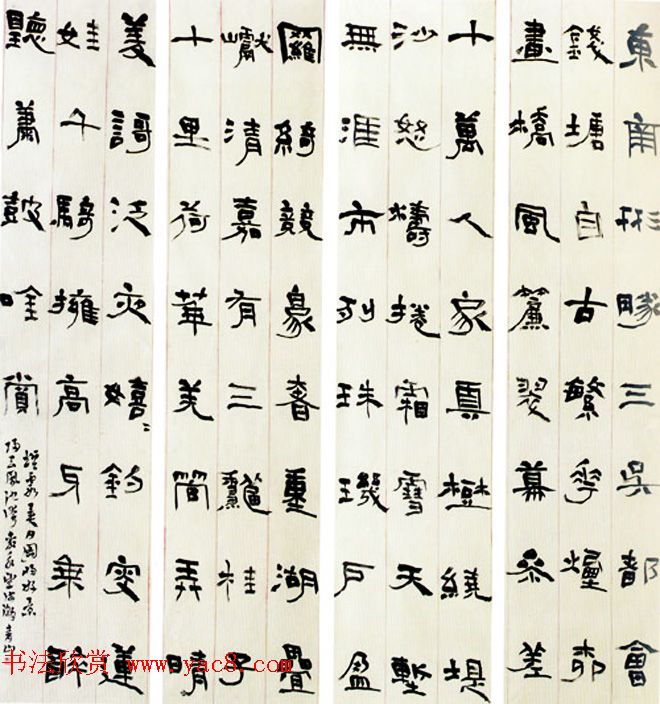 東南形勝三吳都會
錢塘自古繁華煙柳
畫橋風簾翠幕參差
十萬人家雲樹繞堤
沙怒濤捲霜雪天塹
無涯市列珠璣戶盈
羅綺競豪奢重湖疊
巘清嘉有三秋桂子
十里荷華羌管弄晴
菱謌泛夜嬉〻釣叟蓮
娃千騎擁高牙乘醉
聽簫鼓吟賞
煙霞異日圖將好景
歸去鳳池誇
书法欣赏 www.yac8.com